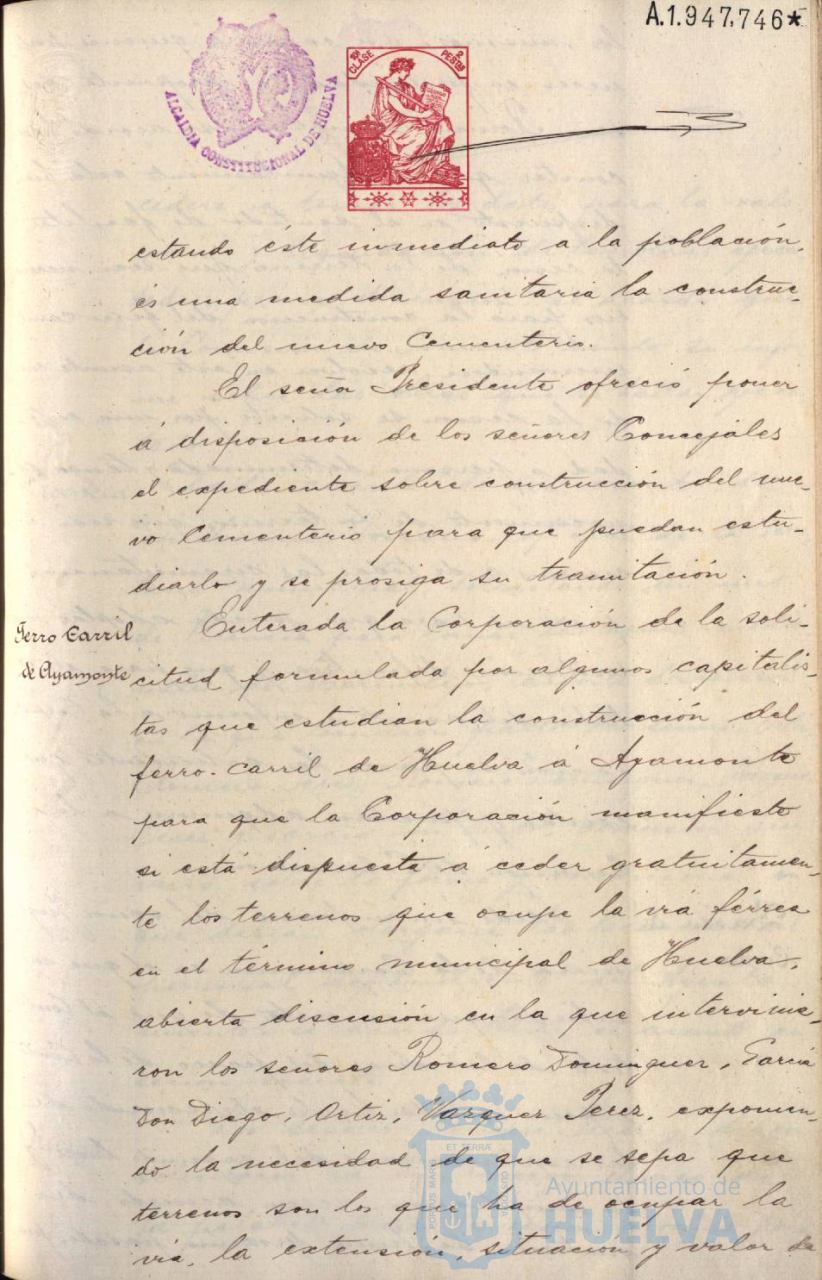 A.1.947,746*
ALCALDIA CONSTITUCIONAL DE HUELVA
10ª CLASE 2 PESTAS
estando éste inmediato a la población,
és una medida sanitaria la construc-
ción del nuevo Cementerio.
El señor Presidente ofreció poner
á disposición de los señores Concejales
el expediente sobre construcción del nue-
vo Cementerio para que puedan estu-
diarlo y se prosiga su tramitación.
Ferro Carril
de Ayamonte
Enterada la Corporación de la soli-
citud formulada por algunos capitalis-
tas que estudian la construcción del
ferro-carril de Huelva á Ayamonte
para que la Corporación manifieste
si está dispuesta á ceder gratuitamen-
te los terrenos que ocupe la viá férrea
en el término municipal de Huelva,
abierta discusión en la que intervinie-
ron los señores Romero Dominguez, García
Don Diego, Ortiz, Vazquez Perez, exponien-
do la necesidad de que se sepa que
terrenos son los que ha de ocupar la
viá, la extensión, situación y valor de
PORTUS MARIS ET TERRÆ CUSTODIA
Ayuntamiento de
HUELVA